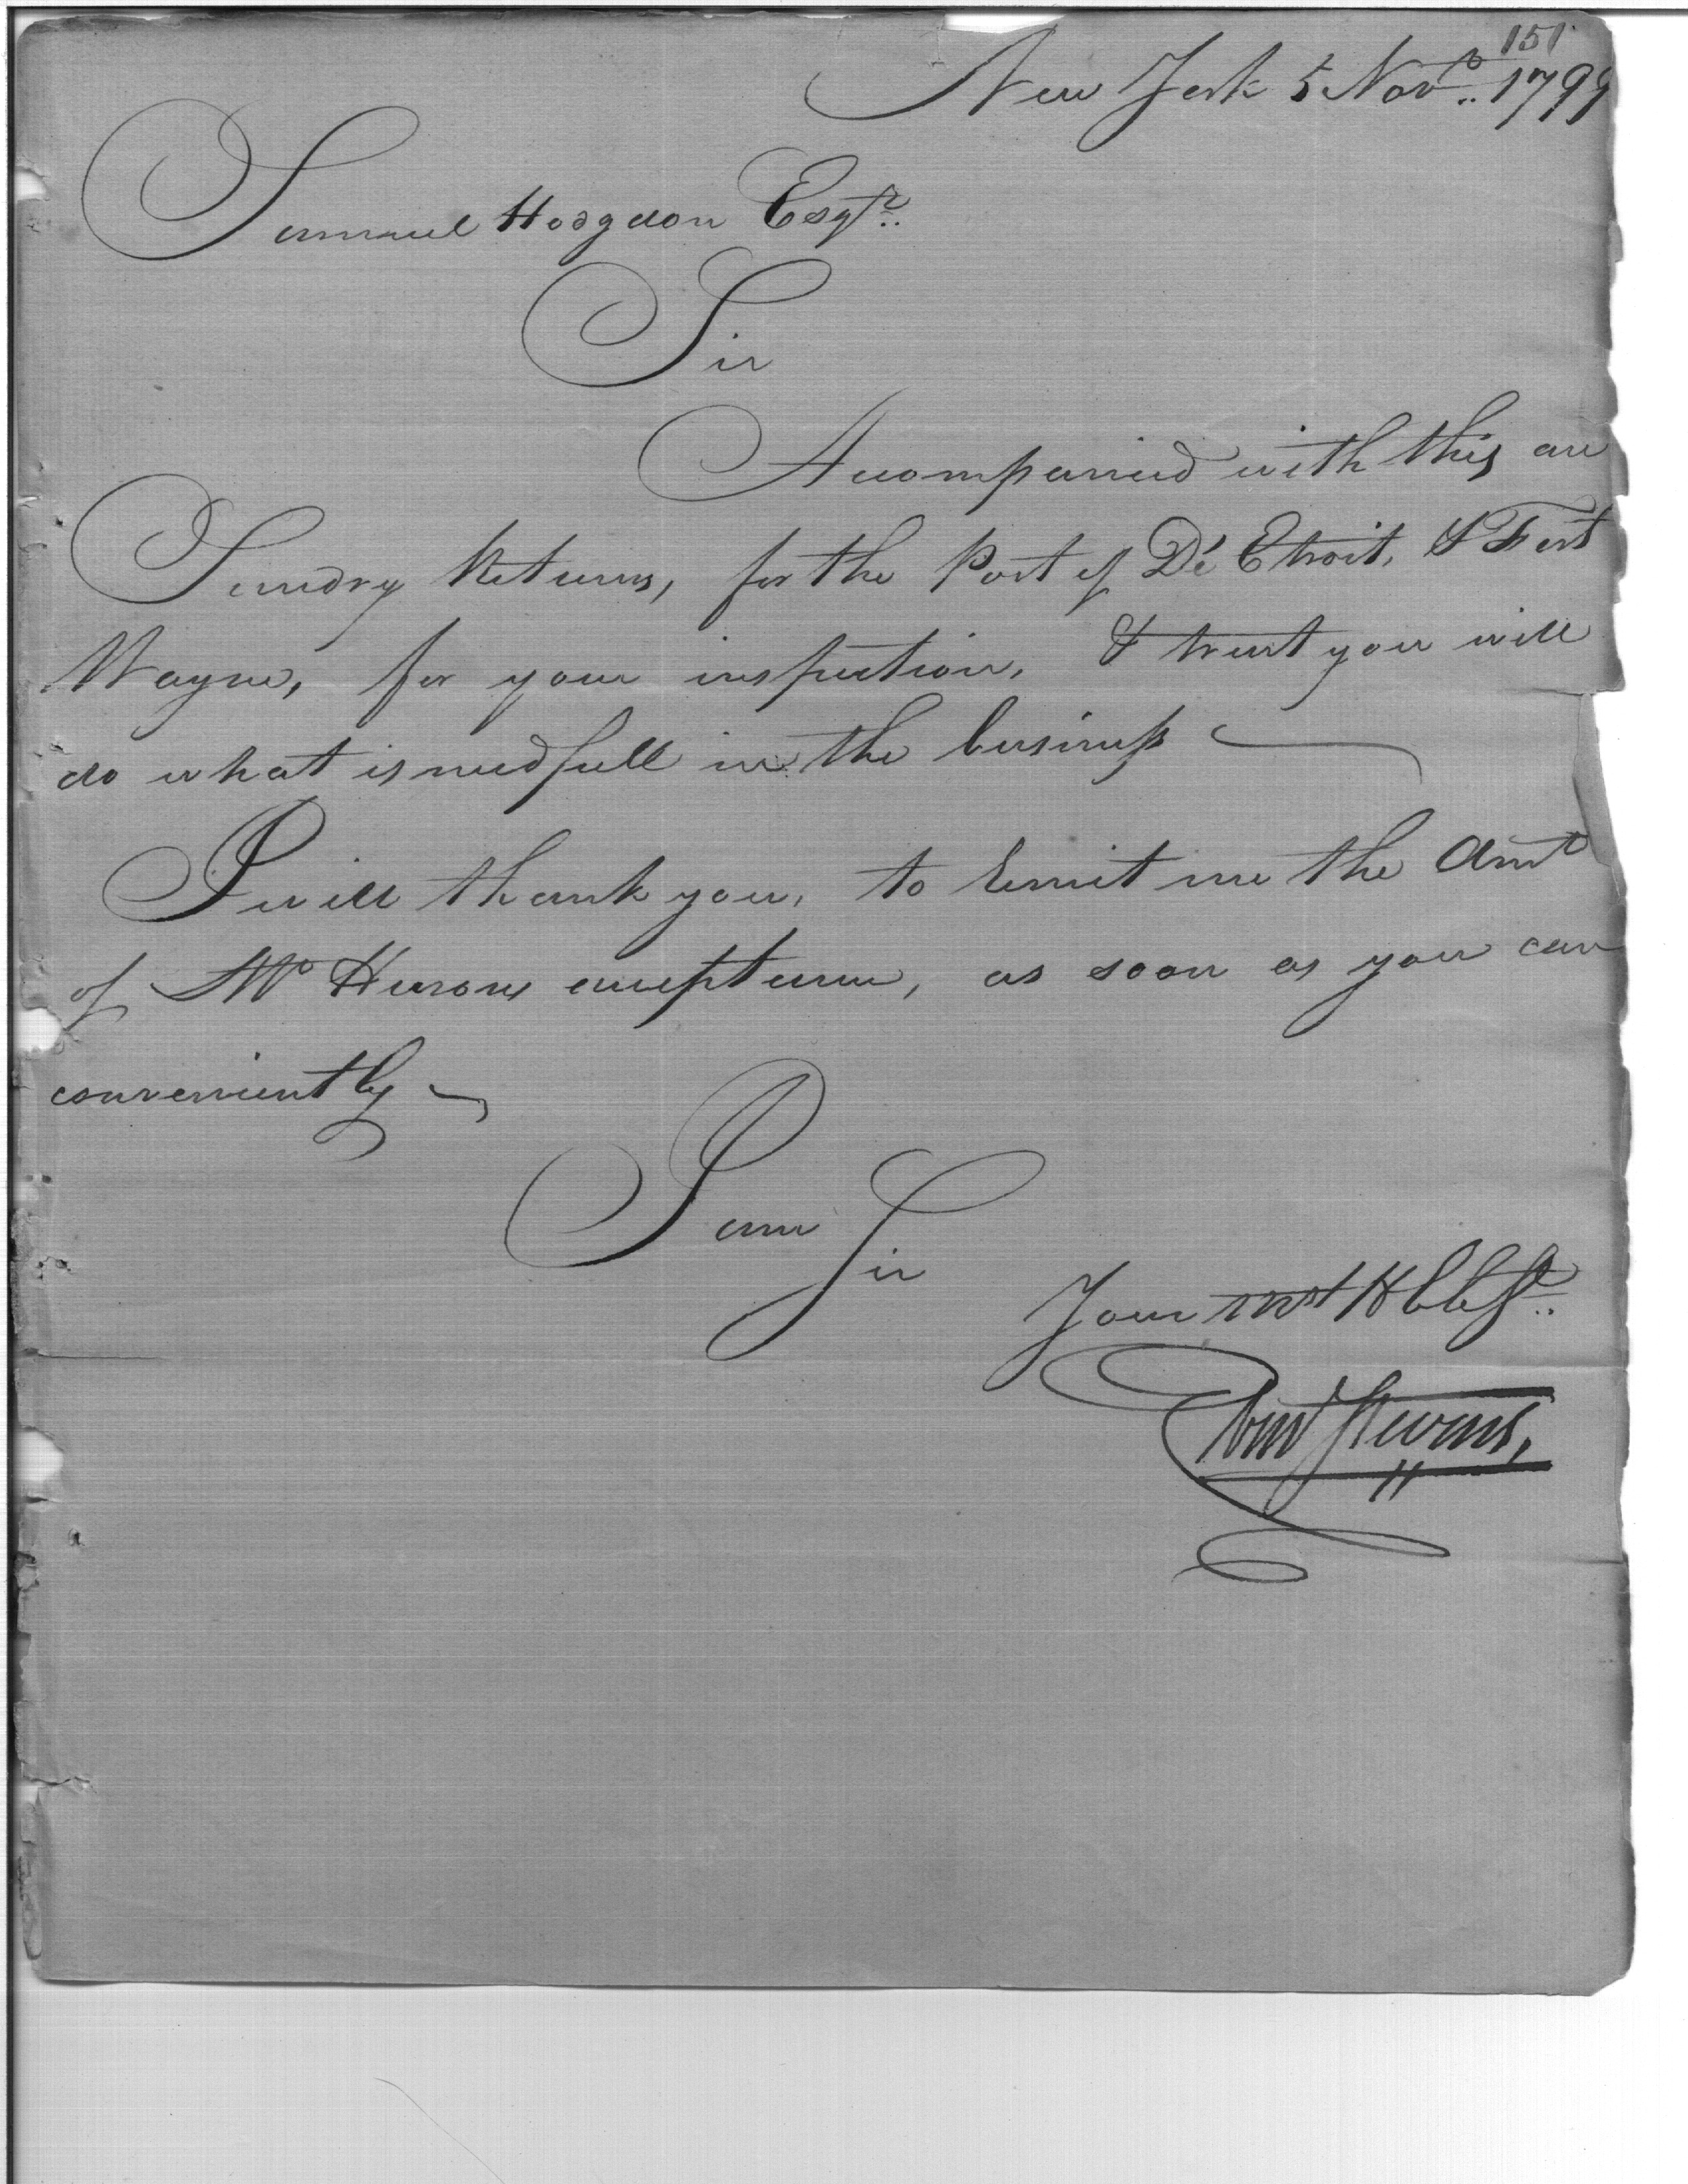 151
New York 5 Novr. 1799
Samuel Hodgdon Esqr.
Sir
Accompanied with this are
Sundry Returns, for the Post of De'Etroit, & Fort
Wayne, for your inspection, & trust you will
do what is needfull in the business
I will thank you, to remit me the Amt
of Mr acceptance, as soon as you can
conveniently
I am
Sir
Your mst Hble St.
Ebenr Stevens,